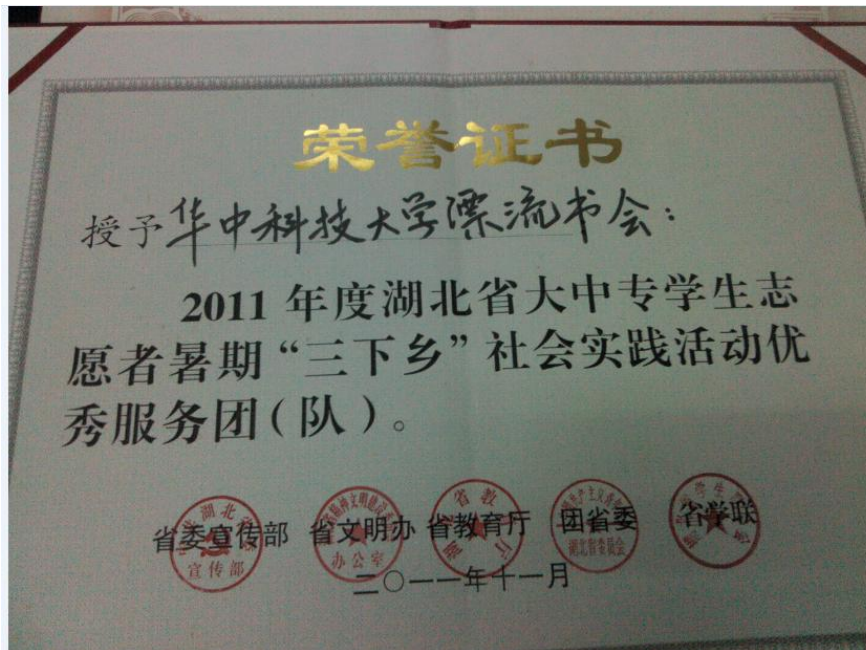 荣誉证书
授予华中科技大学漂流书会：
2011年度湖北省大中专学生志
愿者暑期“三下乡”社会实践活动优
秀服务团（队）。
省委宣传部 省文明办 省教育厅 团省委 省学联
宣传部 办公室 湖北省委员会
二〇一一年十一月